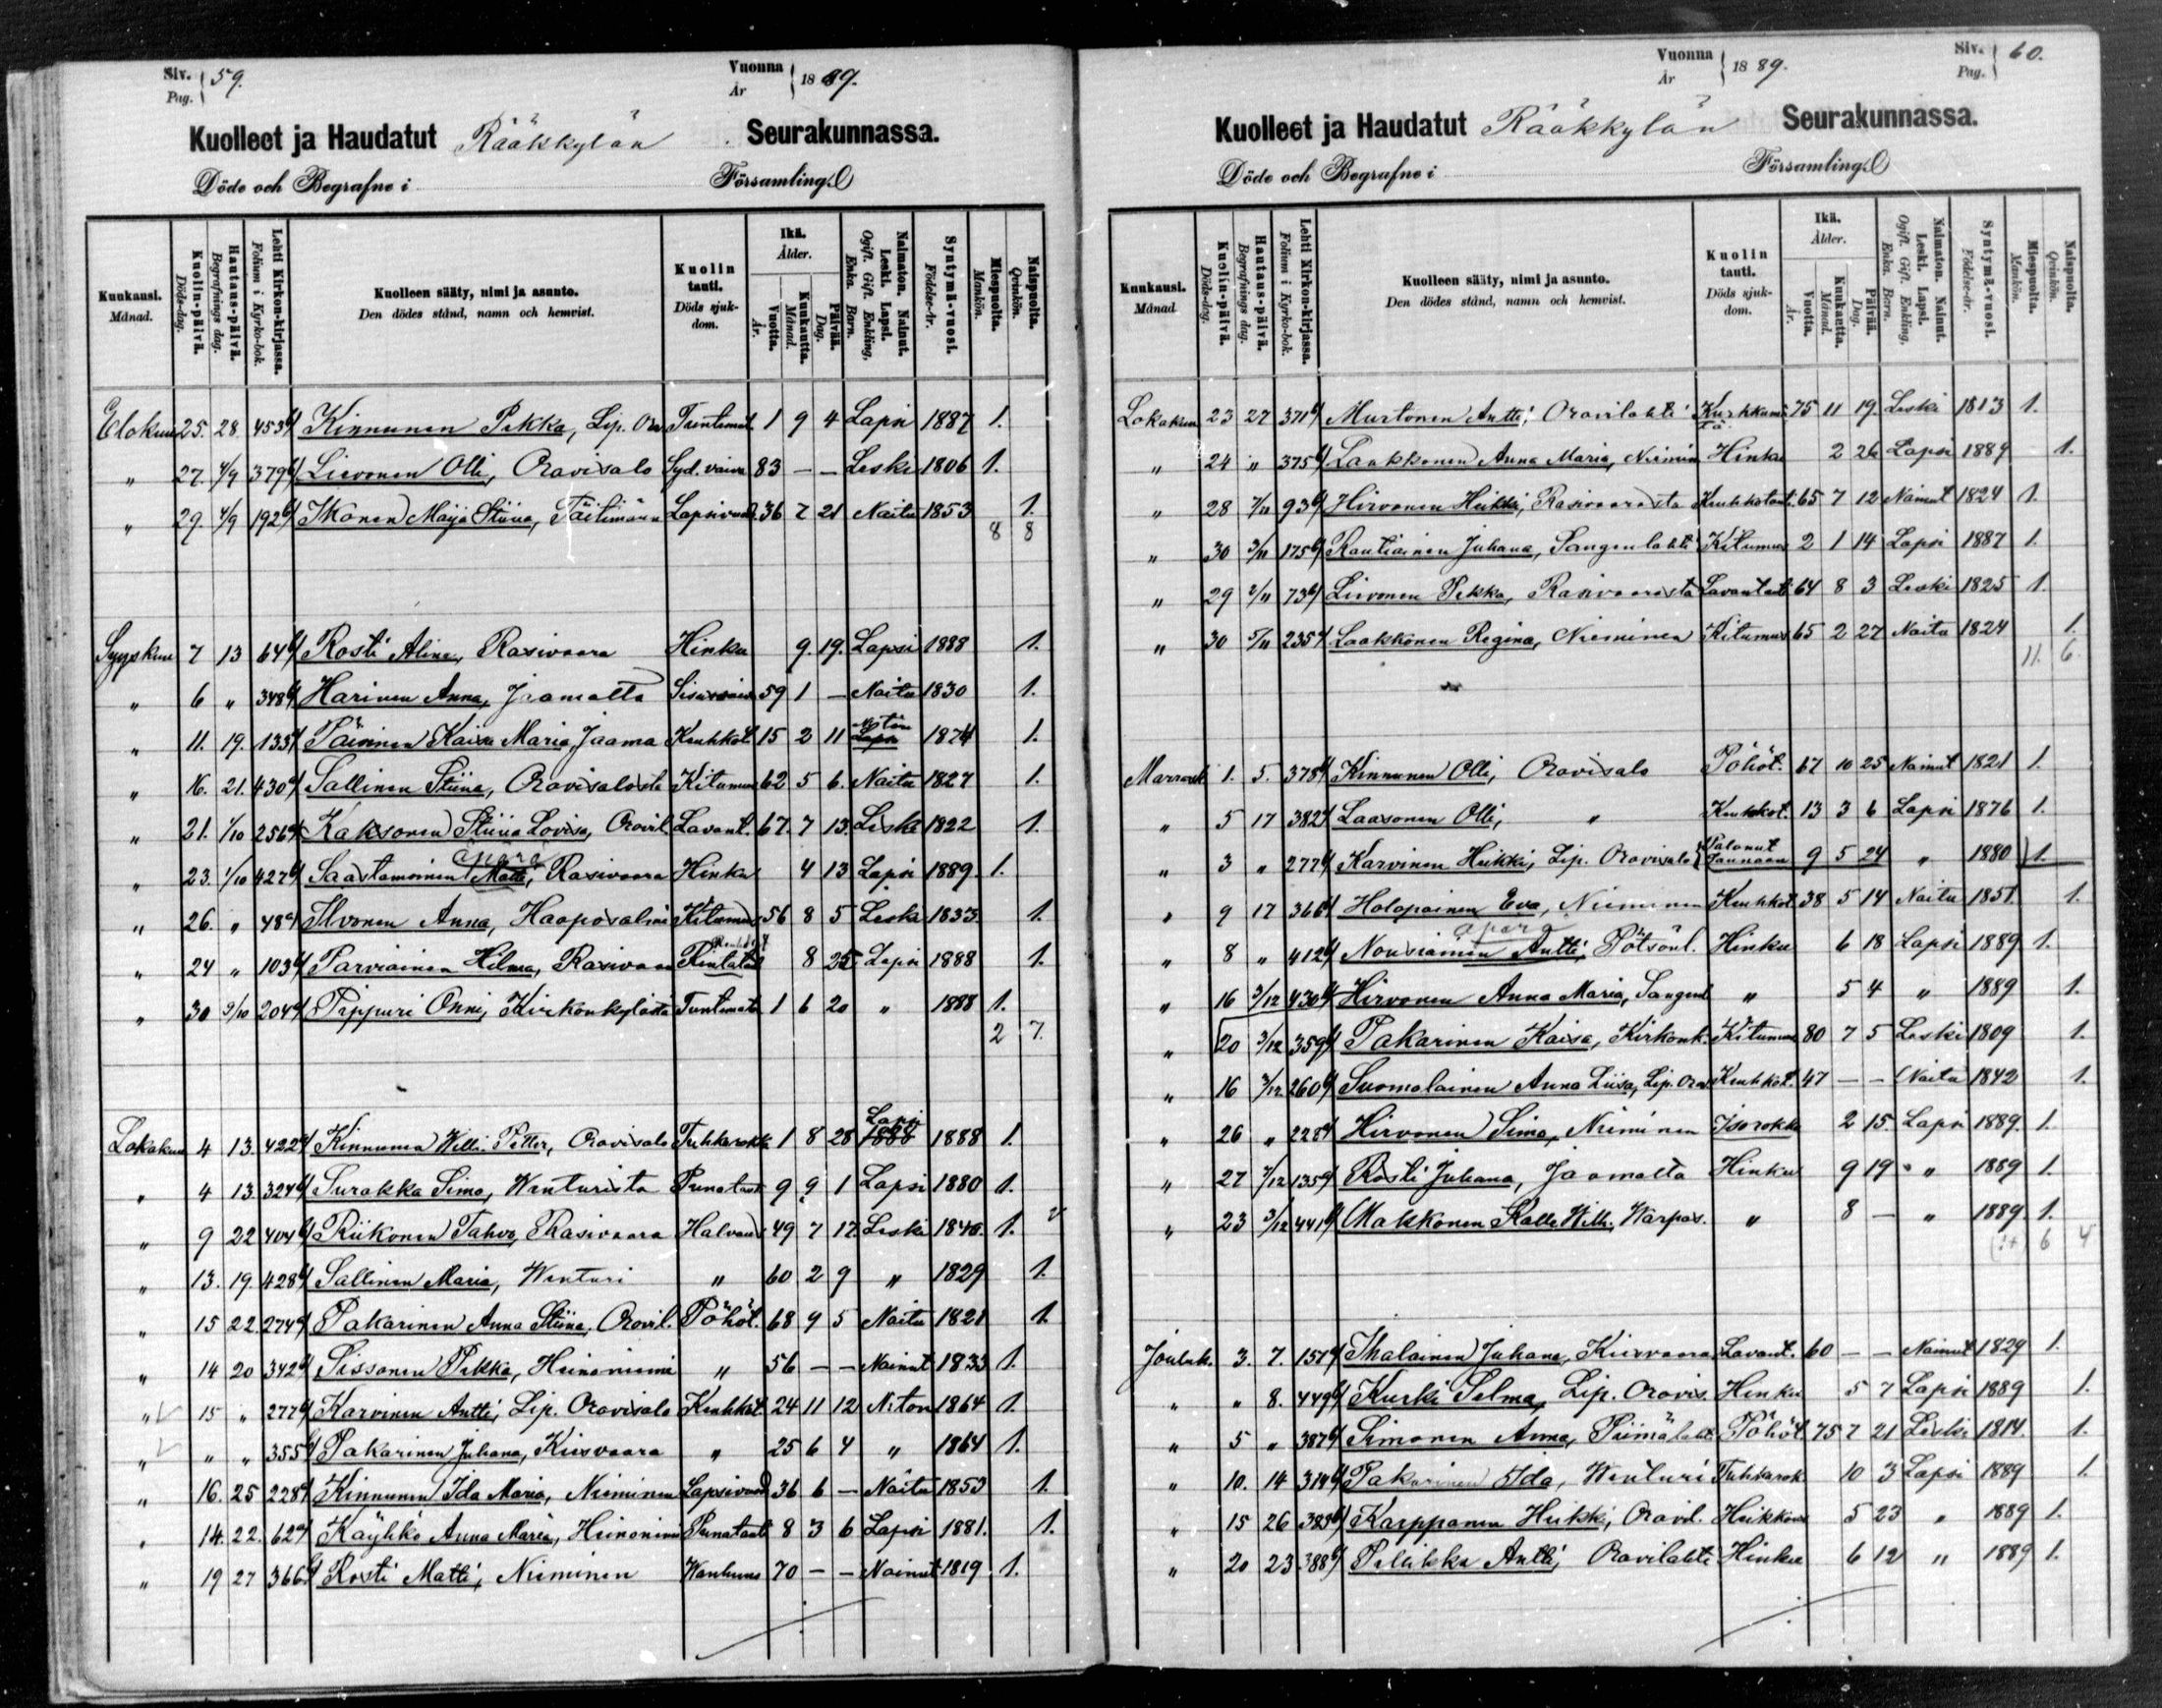 Siv. 59.
Pag.
Vuonna 1889.
År
Kuolleet ja Haudatut Rääkkylän Seurakunnassa.
Döde och Begrafne i Församling.
Kuukausi. Månad.
Kuolin-päivä. Döds-dag.
Hautaus-päivä. Begrafnings dag.
Lehti Kirkon-kirjassa. Folium i Kyrko-bok.
Kuolleen sääty, nimi ja asunto. Den dödes stånd, namn och hemvist.
Kuolin tauti. Döds sjukdom.
Ikä. Ålder.
Vuotta. År.
Kuukautta. Månad.
Päivää. Dag.
Naimaton. Nainut. Leski. Lapsi. Ogift. Gift. Enkling, Enka. Barn.
Syntymä-vuosi. Födelse-år.
Miespuolta. Mankön.
Naispuolta. Qvinkön.
Elokuu 25. 28. 453 Kinnunen Pekka, Lip. Ora Tuntemat. 1 9 4 Lapsi 1887 1.
" 27. 4/9 379 Lievonen Olli, Oravisalo Syd. vaiva 83 – – Leski 1806 1.
" 29. 4/9 192 Ikonen Maija Stiina, Lapsivuod. 36 7 21 Naitu 1853 1.
8 8
Syyskuu 7 13 64 Rosti Alina, Rasivaara Hinku 9. 19. Lapsi 1888 1.
" 6 " 348 Harinen Anna, Jaamalta 59 1 – Naitu 1830 1.
" 11. 19. 135 Päivinen Kaisa Maria, Jaama Keuhkot. 15 2 11 1874 1.
" 16. 21. 430 Sallinen Stiina, Oravisalosta Kitumus 62 5 6. Naitu 1827 1.
" 21. 1/10 256 Kaksonen Stiina Lovisa, Oravil. Lavant. 67. 7 13. Leski 1822 1.
apara
" 23. 1/10 427 Saastamoinen Matti, Rasivaara Hinku 4 13 Lapsi 1889. 1.
" 26. " 48 Ilvonen Anna, Haaposalmi Kitumus 56 8 5 Leski 1833 1.
" 24 " 103 Parviainen Hilma, Rasivaara 8 25 Lapsi 1888 1.
" 30 9/10 204 Pippuri Onni, Kirkonkylästä Tuntemato 1 6 20 " 1888 1.
2 7.
Lokakuu 4 13. 422 Kinnunen Willi. Petter, Oravisalo Tuhkarokko 1 8 28 Lapsi 1888 1888 1.
" 4 13 324 Surakka Simo, Wenturista Punataut 9 9 1 Lapsi 1880 1.
" 9 22 404 Riikonen Tahvo, Rasivaara Halvaus 49 7 17. Leski 1840. 1.
" 13. 19. 428 Sallinen Maria, Wenturi " 60 2 9 " 1829 1.
" 15 22. 274 Pakarinen Anna Stiina, Oravil. Pöhöt. 68 9 5 Naitu 1821 1.
" 14 20 342 Sissonen Pekka, Heinoniemi " 56 – – Nainut 1833 1.
" 15 " 277 Karvinen Antti, Lip. Oravisalo Keuhkot. 24 11 12 N:ton 1864 1.
" " " 355 Pakarinen Juhana, Kiesvaara " 25 6 4 " 1864 1.
" 16. 25 228 Kinnunen Ida Maria, Nieminen Lapsivuod 36 6 – Naitu 1853 1.
" 14. 22. 62 Käyhkö Anna Maria, Heinoniemi Punataut 8 3 6 Lapsi 1881. 1.
" 19 27 366 Rosti Matti, Nieminen Wanhuus 70 – – Nainut 1819. 1.
Siv. 60.
Pag.
Vuonna 1889.
År
Kuolleet ja Haudatut Rääkkylän Seurakunnassa.
Döde och Begrafne i Församling.
Kuukausi. Månad
Kuolin-päivä. Döds-dag.
Hautaus-päivä. Begrafnings dag.
Lehti Kirkon-kirjassa. Folium i Kyrko-bok.
Kuolleen sääty, nimi ja asunto. Den dödes stånd, namn och hemvist.
Kuolin tauti. Döds sjukdom.
Ikä. Ålder.
Vuotta. År.
Kuukautta. Månad.
Päivää. Dag.
Naimaton. Nainut. Leski. Lapsi. Ogift. Gift. Enkling, Enka. Barn.
Syntymä-vuosi. Födelse-år.
Miespuolta. Mankön.
Naispuolta. Qvinkön.
Lokakuu 23 27 371 Murtonen Antti, Oravilahti 75 11 19. Leski 1813 1.
" 24 " 375 Laakkonen Anna Maria, Niemin Hinku 2 26 Lapsi 1889 1.
" 28 7/11 93 Hirvonen Heikki, Rasivaarasta Keuhkotaut. 65 7 12 Nainut 1824 1.
" 30 3/11 175 Rautiainen Juhana, Sangenlahti Kitumus 2 1 14 Lapsi 1887 1.
" 29 2/11 73 Lievonen Pekka, Rasivaarasta Lavantaut 64 8 3 Leski 1825 1.
" 30 5/11 235 Laakkonen Regina, Nieminen Kitumus 65 2 27 Naitu 1824 1.
11. 6.
Marrask 1. 5. 378 Kinnunen Olli, Oravisalo Pöhöt. 67 10 25 Nainut 1821 1.
" 5 17 382 Laasonen Olli, " Keuhkot. 13 3 6 Lapsi 1876 1.
" 3 " 277 Karvinen Heikki, Lip. Oravisalo Palanut Saunaan 9 5 24 " 1880 1.
" 9 17 366 Holopainen Eva, Nieminen Keuhkot 38 5 14 Naitu 1851 1.
apara
" 8 " 412 Nousiainen Antti, Pötsönl. Hinku 6 18 Lapsi 1889 1.
" 16 3/12 430 Hirvonen Anna Maria, Sangenl " 5 4 " 1889 1.
" 20 3/12 359 Pakarinen Kaisa, Kirkonk. Kitumus 80 7 5 Leski 1809 1.
" 16 3/12 260 Suomalainen Anna Liisa, Lip. Orav Keuhkot. 47 – – Naitu 1842 1.
" 26 " 228 Hirvonen Simo, Nieminen Isorokko 2 15. Lapsi 1889. 1.
" 27 7/12 135 Rosti Juhana, Jaamalta Hinku 9 19 " 1889 1.
" 23 3/12 441 Makkonen Kalle Wilh. Warpas. " 8 – " 1889. 1.
6 4
Jouluk. 3. 7. 151 Ihalainen Juhana, Kiesvaara Lavant. 60 – – Nainut 1829 1.
" " 8. 449 Kurki Selma, Lip. Oravis. Hinku 5 7 Lapsi 1889 1.
" 5 " 387 Simonen Anna, Piimälahti Pöhöt 75 7 21 Leski 1814. 1.
" 10. 14 314 Pakarinen Ida, Wenturi Tuhkarok 10 3 Lapsi 1889 1.
" 15 26 383 Karppanen Heikki, Oravil. Heikkous 5 23 " 1889 1.
" 20 23. 388 Pellikka Antti, Oravilahti Hinku 6 12 " 1889 1.